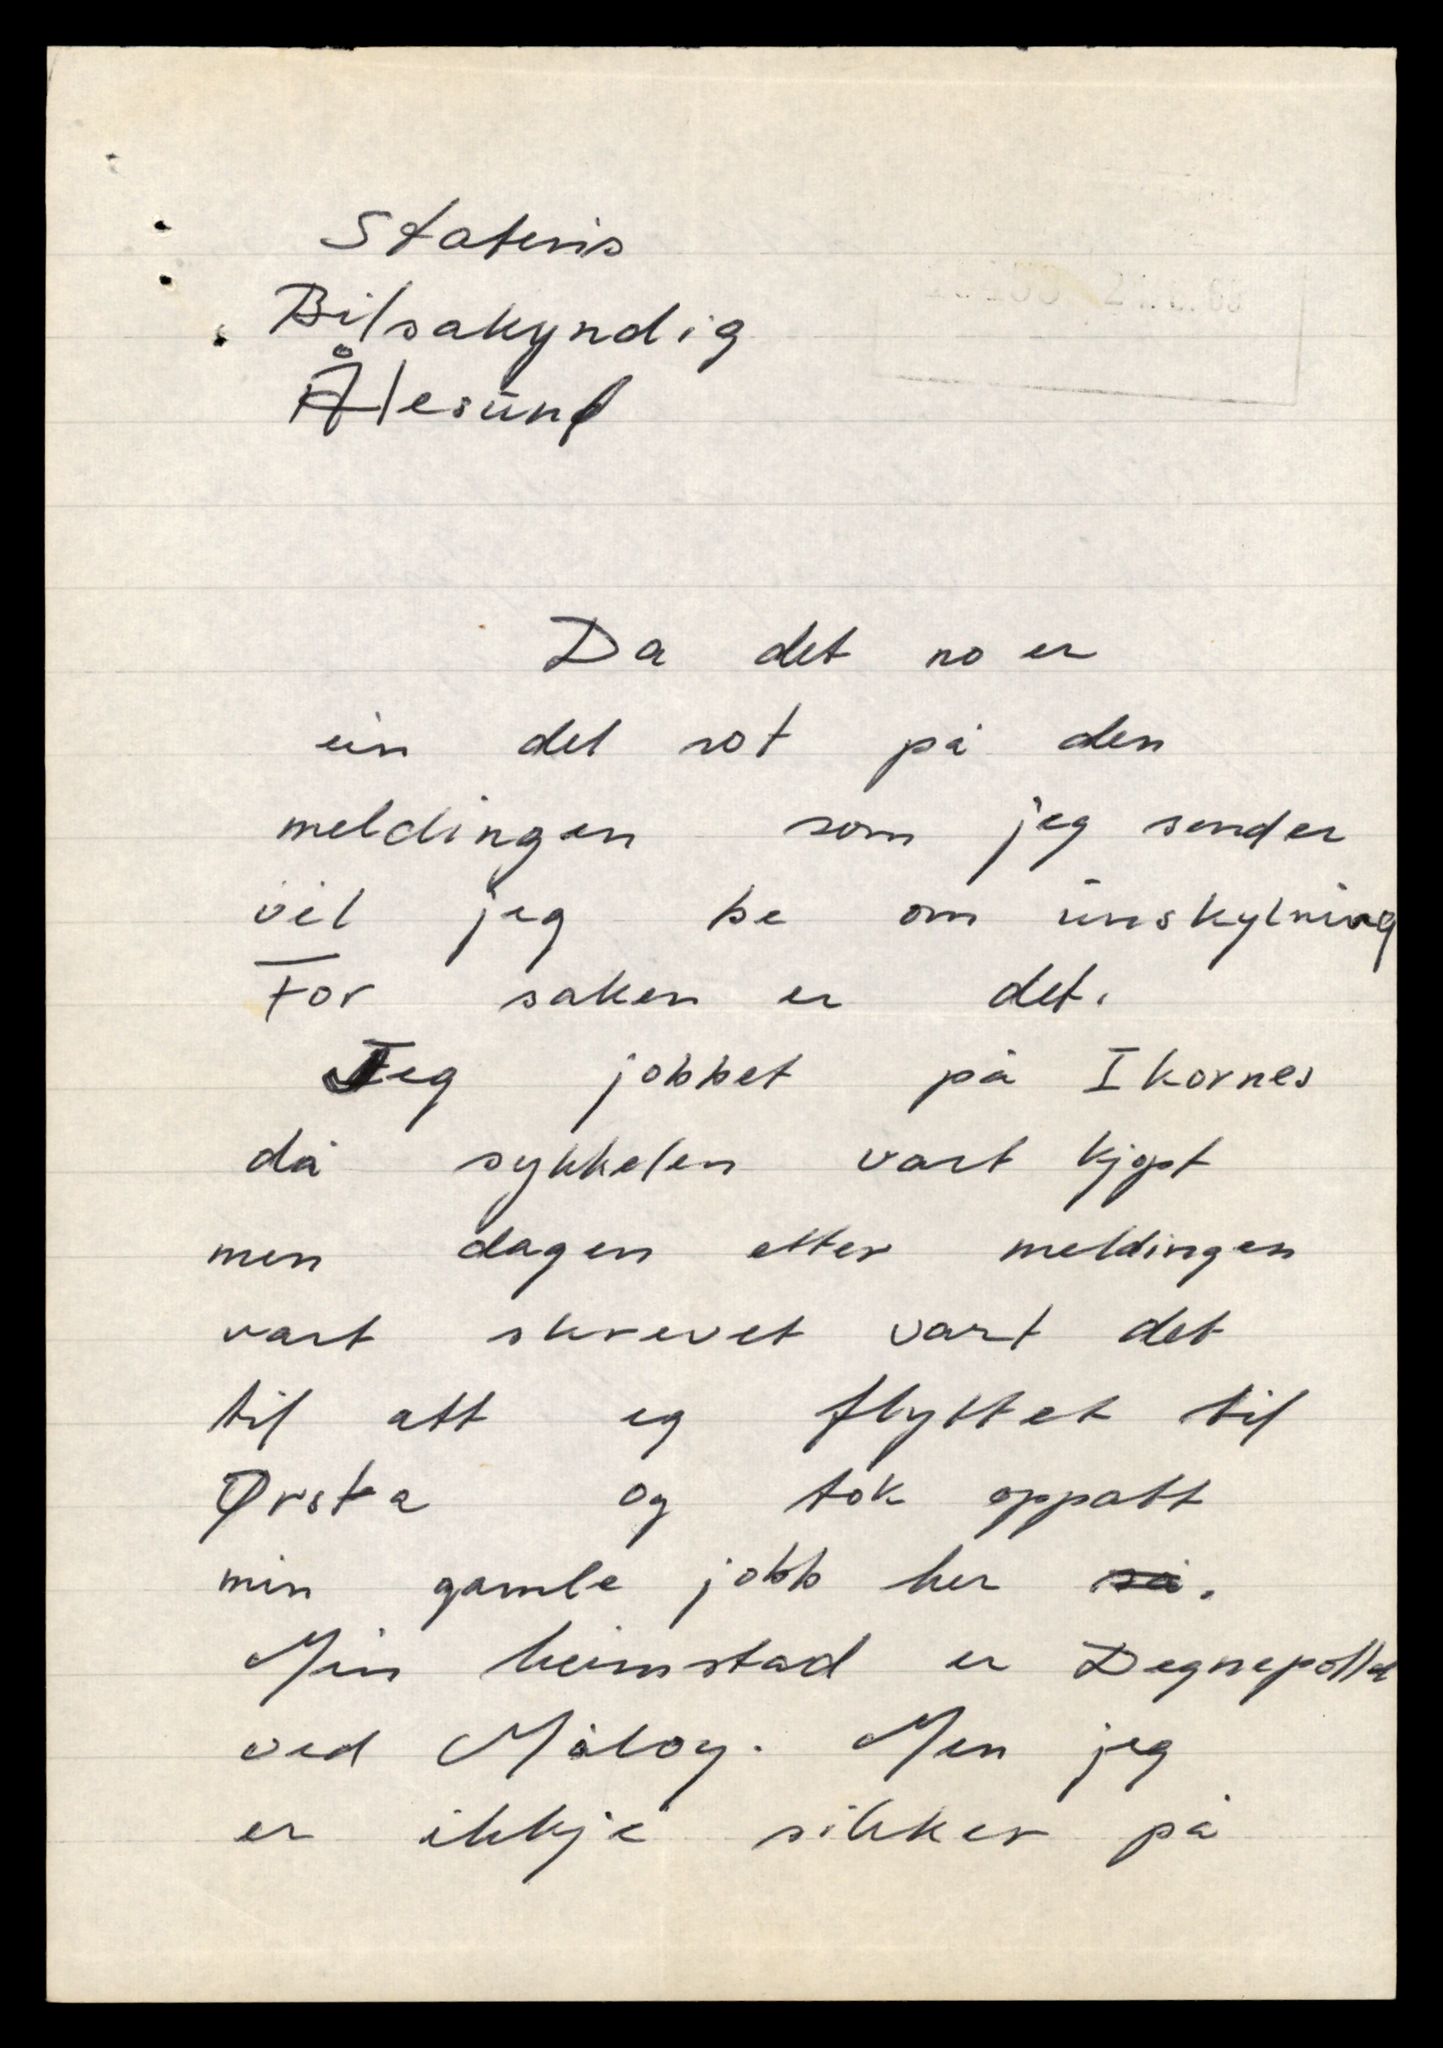 Statens
Bilsakyndig
Ålesund
Da det no er
ein del rot på den
meldingen som jeg sender
vil jeg be om unskylning
For saken er det.
Jeg jobbet på Ikornes
då sykkelen vart kjøpt
men dagen etter meldingen
vart skrevet vart det
til att eg flyttet til
Ørsta og tok oppatt
min gamle jobb her så.
Min heimstad er Degnepoll
ved Måloy. Men jeg
er ikkje sikker på